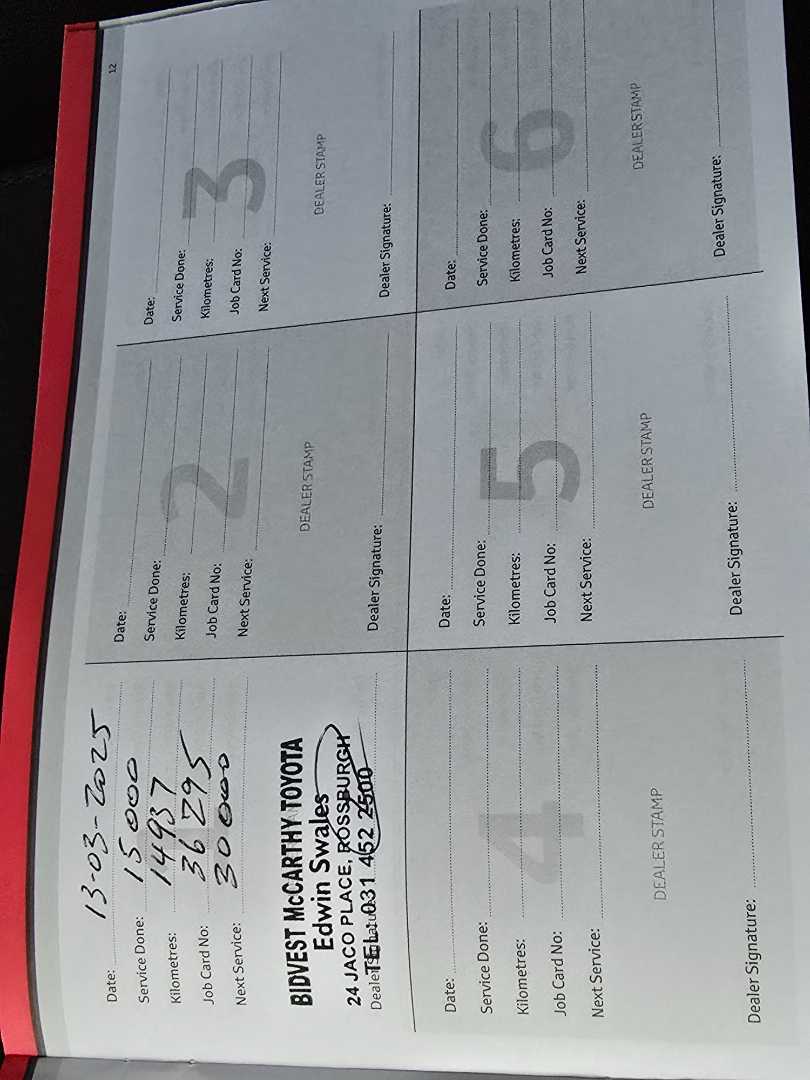 12
Date: 13-03-2025
Service Done: 15 000
Kilometres: 14937
Job Card No: 36 295
Next Service: 30 000
BIDVEST McCARTHY TOYOTA
Edwin Swales
24 JACO PLACE, ROSSBURGH
TEL: 031 452 2500
Dealer Signature:
2
Date:
Service Done:
Kilometres:
Job Card No:
Next Service:
DEALER STAMP
Dealer Signature:
3
Date:
Service Done:
Kilometres:
Job Card No:
Next Service:
DEALER STAMP
Dealer Signature:
4
Date:
Service Done:
Kilometres:
Job Card No:
Next Service:
DEALER STAMP
Dealer Signature:
5
Date:
Service Done:
Kilometres:
Job Card No:
Next Service:
DEALER STAMP
Dealer Signature:
6
Date:
Service Done:
Kilometres:
Job Card No:
Next Service:
DEALER STAMP
Dealer Signature: